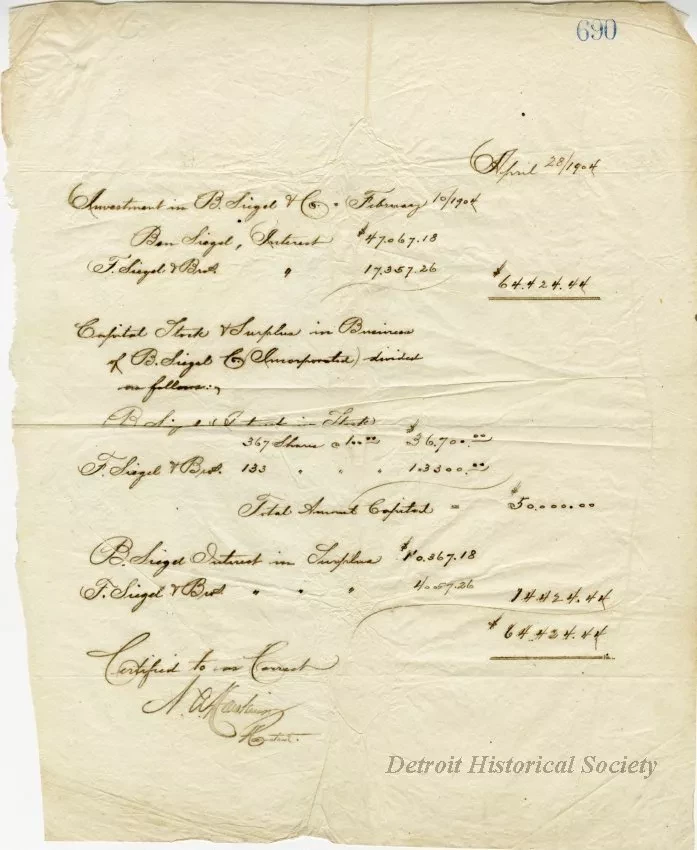 690
April 28/1904
Investment in B. Siegel & Co. - February 10/1904
Ben Siegel, Interest $47,067.18
F. Siegel & Bros. " 17,357.26 $64,424.44
Capital Stock & Surplus in Business
of B. Siegel Co (Incorporated) divided
as follows:-
B Siegel Interest in Stock
367 Shares @ 100.00 $36,700.00
F. Siegel & Bros. 133 " " " 13300.00
Total Amount Capital = $50,000.00
B. Siegel Interest in Surplus $10,367.18
F. Siegel & Bros. " " " 4,057.26 14424.44
$64,424.44
Certified to as Correct
N. A. Hawkins
Detroit Historical Society